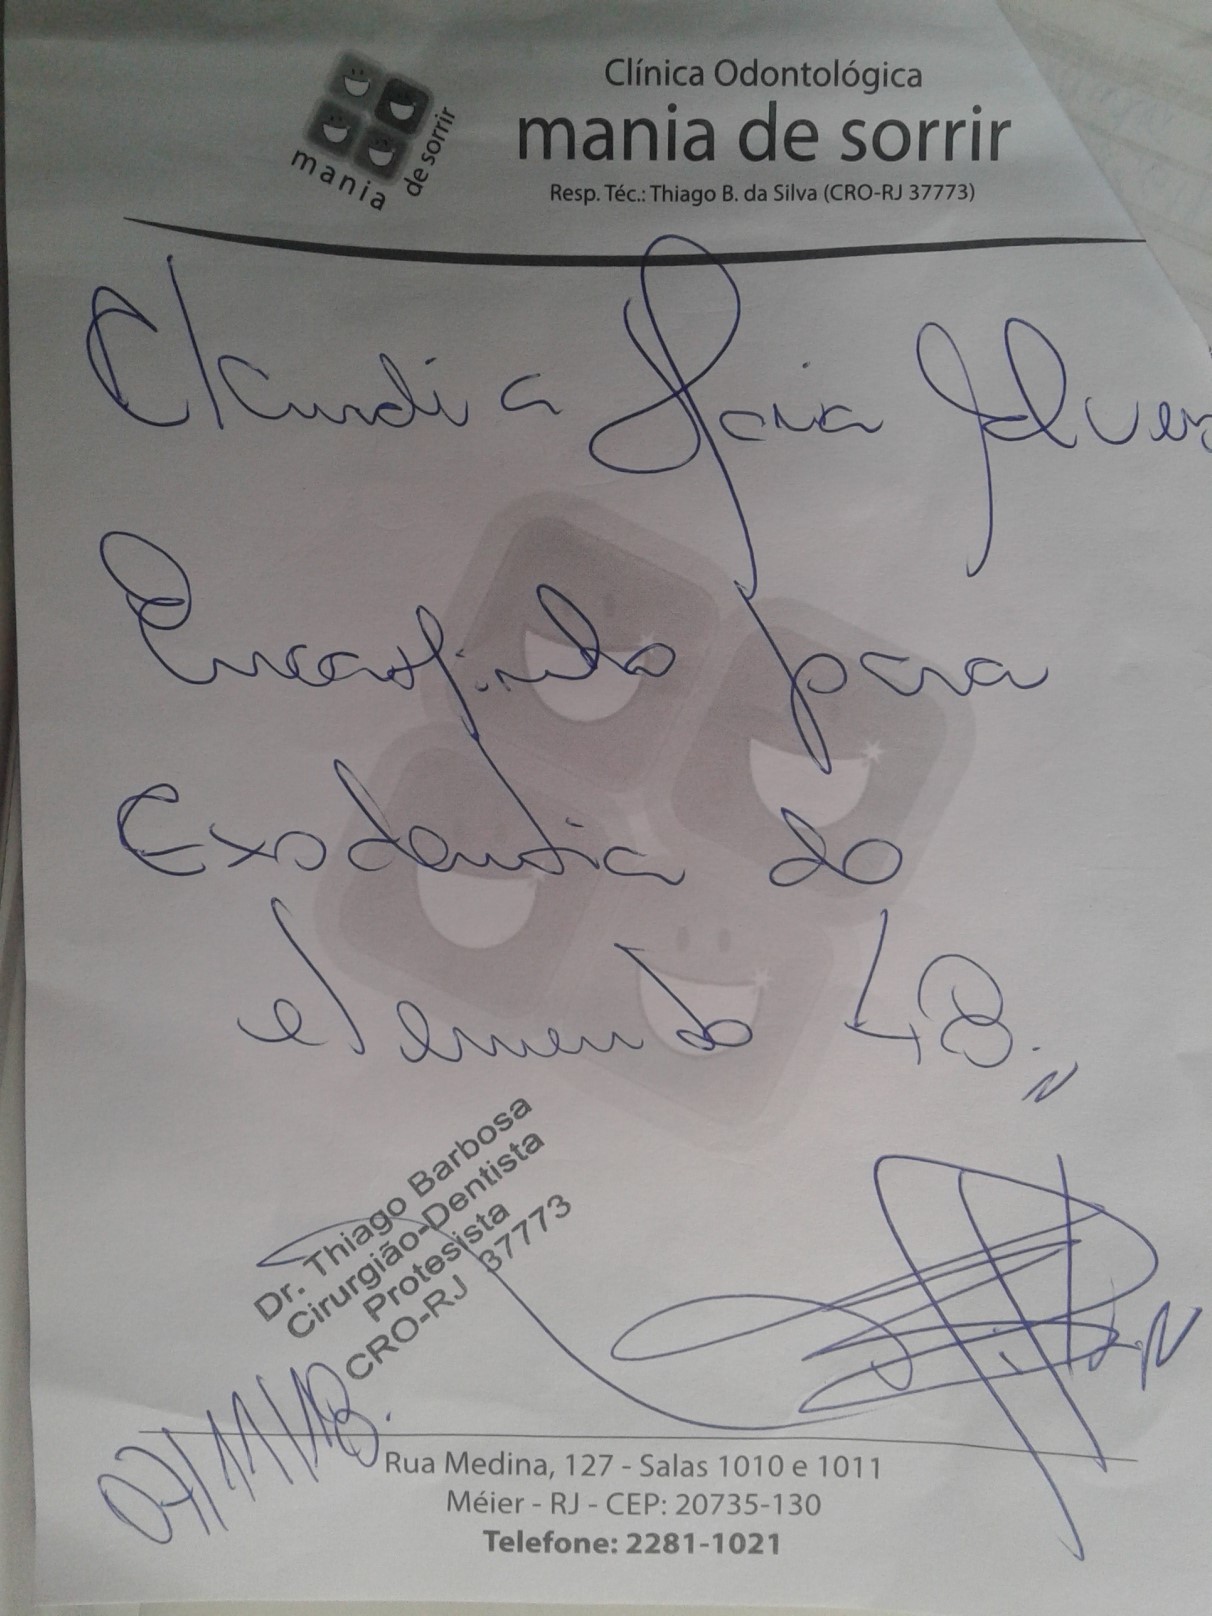 mania de sorrir
Clínica Odontológica
mania de sorrir
Resp. Téc.: Thiago B. da Silva (CRO-RJ 37773)
Claudia Alves
para
Exodentia do
elemento 48.
Dr. Thiago Barbosa
Cirurgião-Dentista
Protesista
CRO-RJ 37773
07/11/18.
Rua Medina, 127 - Salas 1010 e 1011
Méier - RJ - CEP: 20735-130
Telefone: 2281-1021